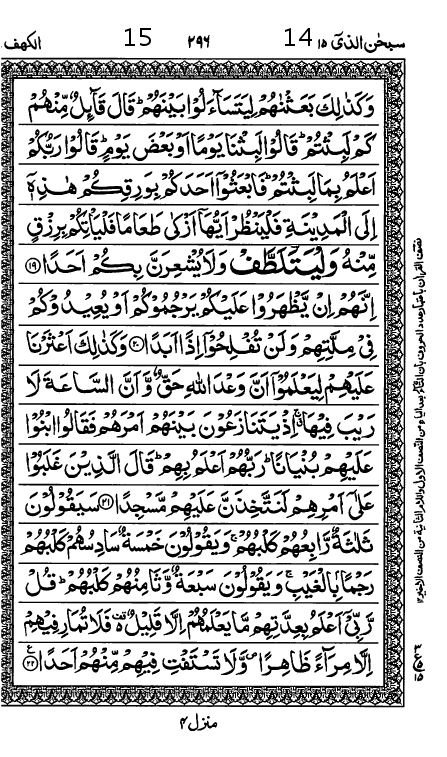 سبحٰن الذیٓ ۱۵ 14 ۲۹۶ 15 الکھف
وَكَذٰلِكَ بَعَثْنٰهُمْ لِيَتَسَآءَلُوْا بَيْنَهُمْ ؕ قَالَ قَآئِلٌ مِّنْهُمْ
كَمْ لَبِثْتُمْ ؕ قَالُوْا لَبِثْنَا يَوْمًا اَوْ بَعْضَ يَوْمٍ ؕ قَالُوْا رَبُّكُمْ
اَعْلَمُ بِمَا لَبِثْتُمْ ؕ فَابْعَثُوْۤا اَحَدَكُمْ بِوَرِقِكُمْ هٰذِهٖۤ
اِلَى الْمَدِيْنَةِ فَلْيَنْظُرْ اَيُّهَاۤ اَزْكٰى طَعَامًا فَلْيَاْتِكُمْ بِرِزْقٍ
مِّنْهُ وَلْيَتَلَطَّفْ وَلَا يُشْعِرَنَّ بِكُمْ اَحَدًا ۱۹
اِنَّهُمْ اِنْ يَّظْهَرُوْا عَلَيْكُمْ يَرْجُمُوْكُمْ اَوْ يُعِيْدُوْكُمْ
فِيْ مِلَّتِهِمْ وَلَنْ تُفْلِحُوْۤا اِذًا اَبَدًا ۲۰ وَكَذٰلِكَ اَعْثَرْنَا
عَلَيْهِمْ لِيَعْلَمُوْۤا اَنَّ وَعْدَ اللّٰهِ حَقٌّ وَّاَنَّ السَّاعَةَ لَا
رَيْبَ فِيْهَا ۚ اِذْ يَتَنَازَعُوْنَ بَيْنَهُمْ اَمْرَهُمْ فَقَالُوا ابْنُوْا
عَلَيْهِمْ بُنْيَانًا ؕ رَبُّهُمْ اَعْلَمُ بِهِمْ ؕ قَالَ الَّذِيْنَ غَلَبُوْا
عَلٰۤى اَمْرِهِمْ لَنَتَّخِذَنَّ عَلَيْهِمْ مَّسْجِدًا ۲۱ سَيَقُوْلُوْنَ
ثَلٰثَةٌ رَّابِعُهُمْ كَلْبُهُمْ ۚ وَيَقُوْلُوْنَ خَمْسَةٌ سَادِسُهُمْ كَلْبُهُمْ
رَجْمًۢا بِالْغَيْبِ ۚ وَيَقُوْلُوْنَ سَبْعَةٌ وَّثَامِنُهُمْ كَلْبُهُمْ ؕ قُلْ
رَّبِّيْۤ اَعْلَمُ بِعِدَّتِهِمْ مَّا يَعْلَمُهُمْ اِلَّا قَلِيْلٌ ۬ۚ فَلَا تُمَارِ فِيْهِمْ
اِلَّا مِرَآءً ظَاهِرًا ۪ وَّلَا تَسْتَفْتِ فِيْهِمْ مِّنْهُمْ اَحَدًا ۲۲
منزل ۴